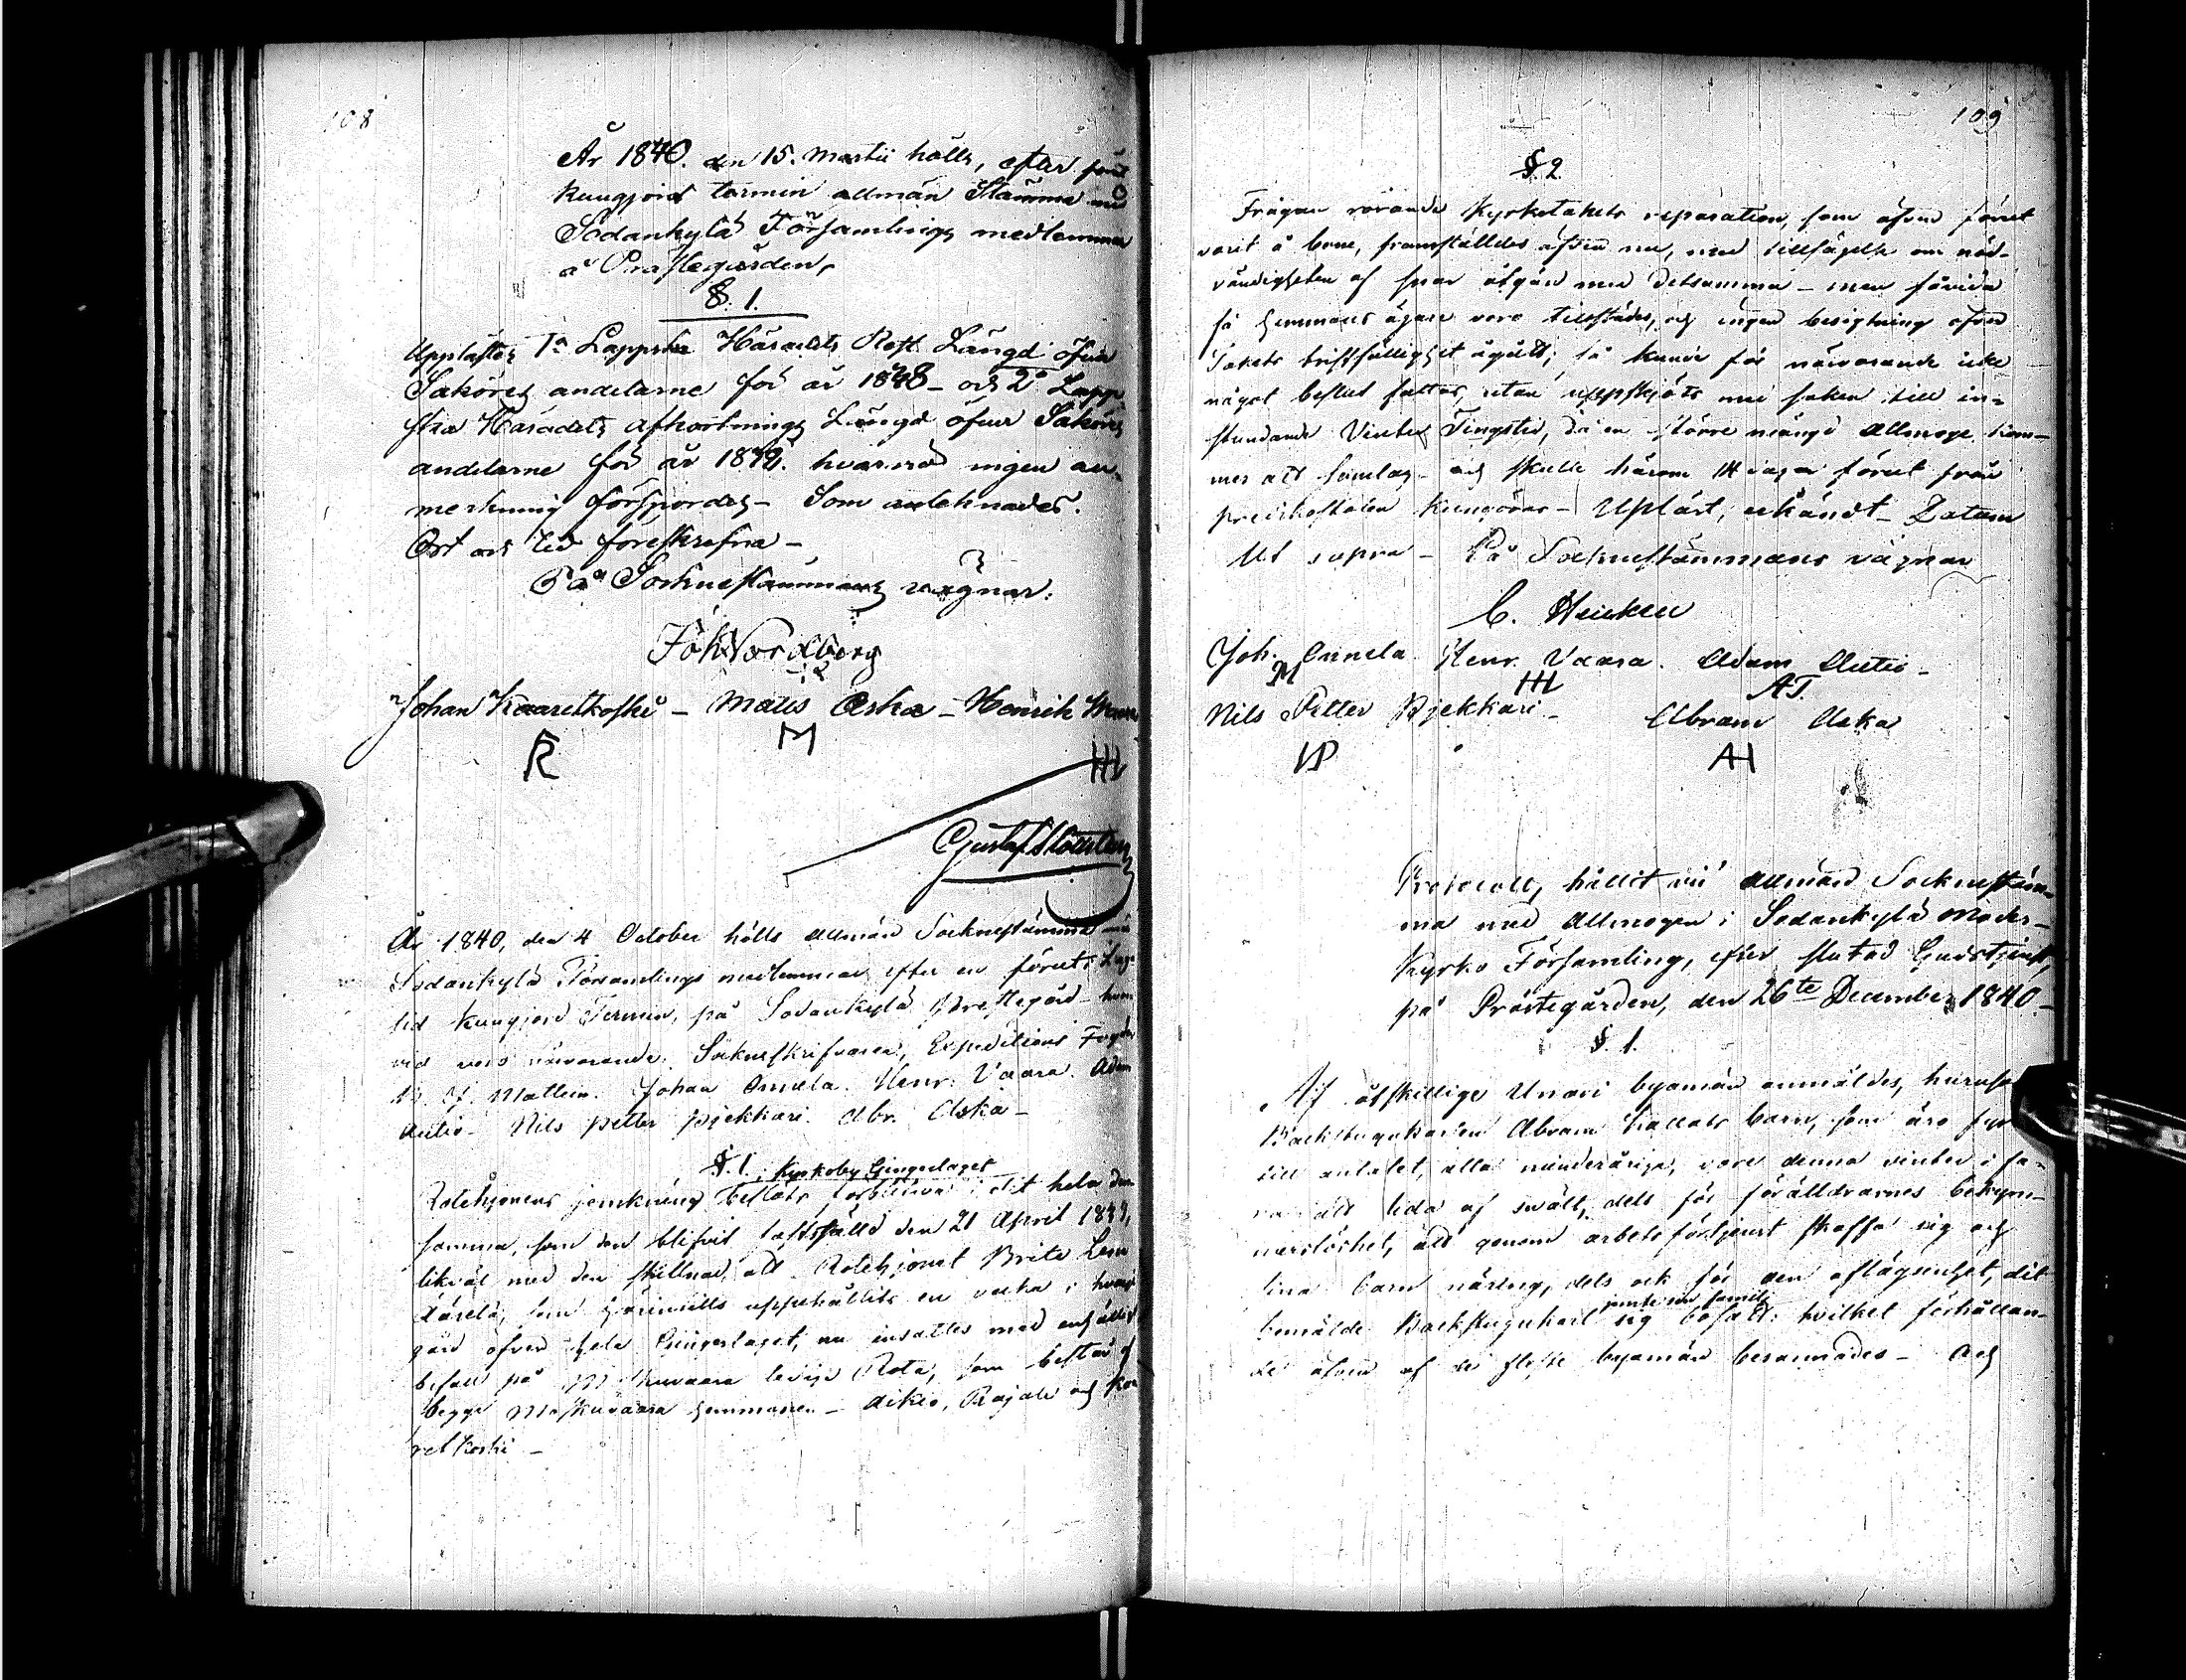 108
År 1840. den 15. Martii hölls, efter förut
kungjord termin allmän Stämma med
Sodankylä Församlings medlemmar
å Prästegården,
§. 1.
Upplästes 1o Lappska Häradets Rest Längd öfver
Saköres andelarne för år 1838 - och 2o Lapp
ska Häradets afkortnings Längd öfver Saköres
andelarne för år 1839. hvarvid ingen an-
merkning försspordes - Som antecknades.
Ort och tid föreskrefna -
På Socknestämmans vägnar.
Joh Nordberg
Johan Kaaretkoski - Matts Aska - Henrik
R M HH
Gustaf
År 1840, den 4 October hölls allmän Socknestämma med
Sodankylä Församlings medlemmar efter en förut i Lag-
tid kungjord Termin, på Sodankylä Prestegård - hvar
vid voro närvarande: Socknskrifvaren, Expeditions Fogden
Mattlin. Johan Onnela. Henr: Vaara. Adam
Autio - Nils Petter Pjekkari. Abr. Aska -
§. 1. Kyrkoby Gingerlaget
Rotehjonens jemkning besløts förblifva i det hela den
samma, som den blifvit fastställd den 21 April 1839,
likväl med den skillnad, att Rotehjonet Brita
som härintills uppehållits en vecka i hvarje
gård öfver hela Gingerlaget, nu insattes med enhälligt
bifall på lediga Rota, som består af
begge Moskuvaara hemmanen - Aikio, Rajala och Kaa
retkoski -
109
§. 2.
Frågan rörande Kyrkotakets reparation, som äfven förut
varit å bane, framställdes äfven nu, med tillsägelse om nöd-
vändigheten af snar åtgärd med detsamma - men såvida
få hemmans ägare voro tillstädes, och ingen besigtning öfver
Takets bristfällighet ägdt; så kunde för närvarande icke
något beslut fattas, utan uppskjöts med saken till in-
stundande Vinter Tingstid, då en större mängd Allmoge kom-
mer att samlas - och skulle härom 14 dagar förut från
predikostolen kungöras - Upläst, erkändt - Datum
Ut supra - På Socknestämmans vägnar
C. Heicken
Joh. Onnela Henr. Vaara. Adam Autio -
M HH AT.
Nils Petter Pjekkari - Abram Aska
NP AH
Protocoll, hållit vid allmän Socknestäm-
ma med Allmogen i Sodankylä Moder-
Kyrko Församling, efter slutad Gudstjenst,
på Prästegården, den 26te December 1840. -
§. 1.
Af åtskillige Unari byamän anmäldes, huruse
Backstugukarlen Abram barn, som äro fyra
till antalet, alla minderåriga, vore denna vinter i fa-
ra att lida af svält, dels för föräldrarnes bekym-
merslöshet, att genom arbetsförtjenst skaffa sig och
sina barn näring, dels ock för den aflägsenhet, dit
bemälde Backstugukarl sig jemte sin familj bosatt: hvilket förhållan-
de äfven af de fleste byamän besannades - och